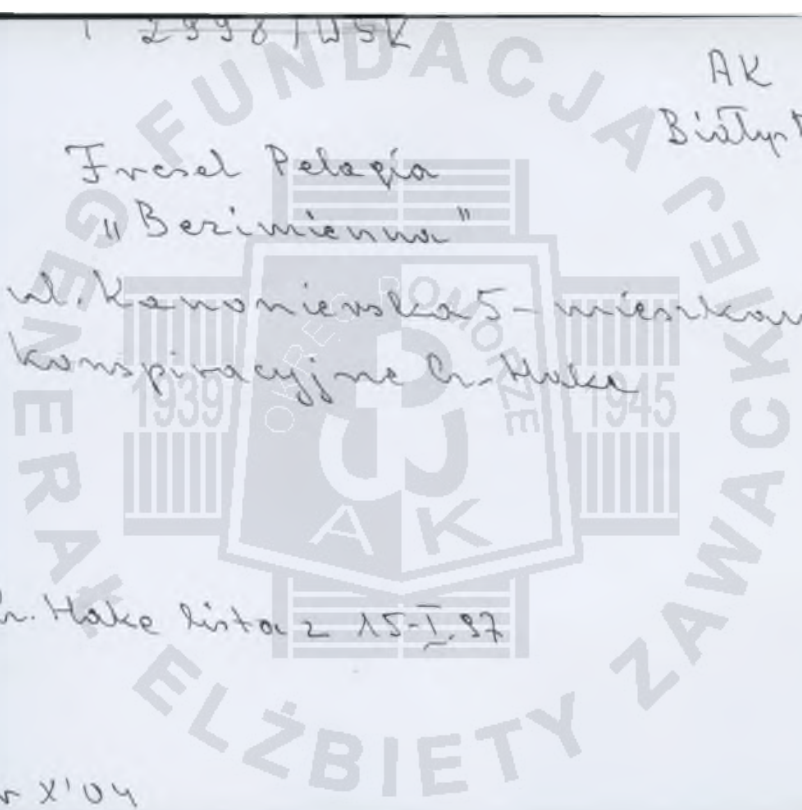 2998/WSK
AK
Białyst
Fresel Pelagia
"Bezimienna"
ul. Kanonierska 5 - mieszkan
konspiracyjne Ch. Hake
Ch. Hake lista z 15-I.97
X'04
FUNDACJA GENERAŁ ELŻBIETY ZAWACKIEJ
OKRĘG POMORZE
1939 1945
AK